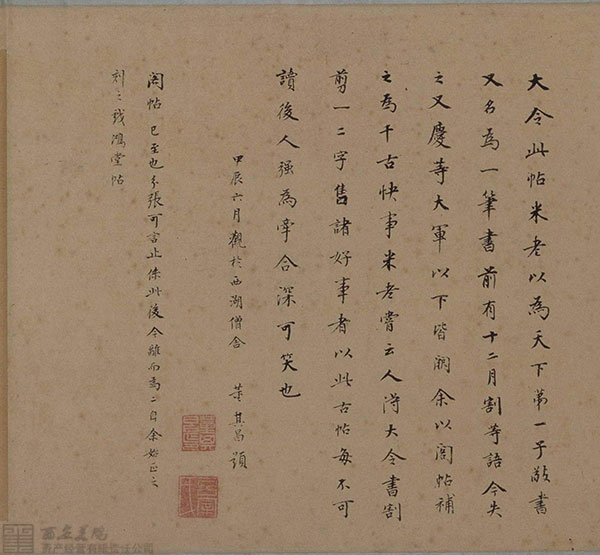 大令此帖米老以為天下第一子敬書
又名為一筆書前有十二月割等語今失
之又慶等大軍以下皆闕余以閣帖補
之為千古快事米老嘗云人得大令書割
剪一二字售諸好事者以此古帖每不可
讀後人強為牽合深可笑也
甲辰六月觀於西湖僧舍 董其昌題
閣帖已至也分張可言止係此後今離而為二自余始正之
刻之戲鴻堂帖
西安美院
资产经营有限责任公司